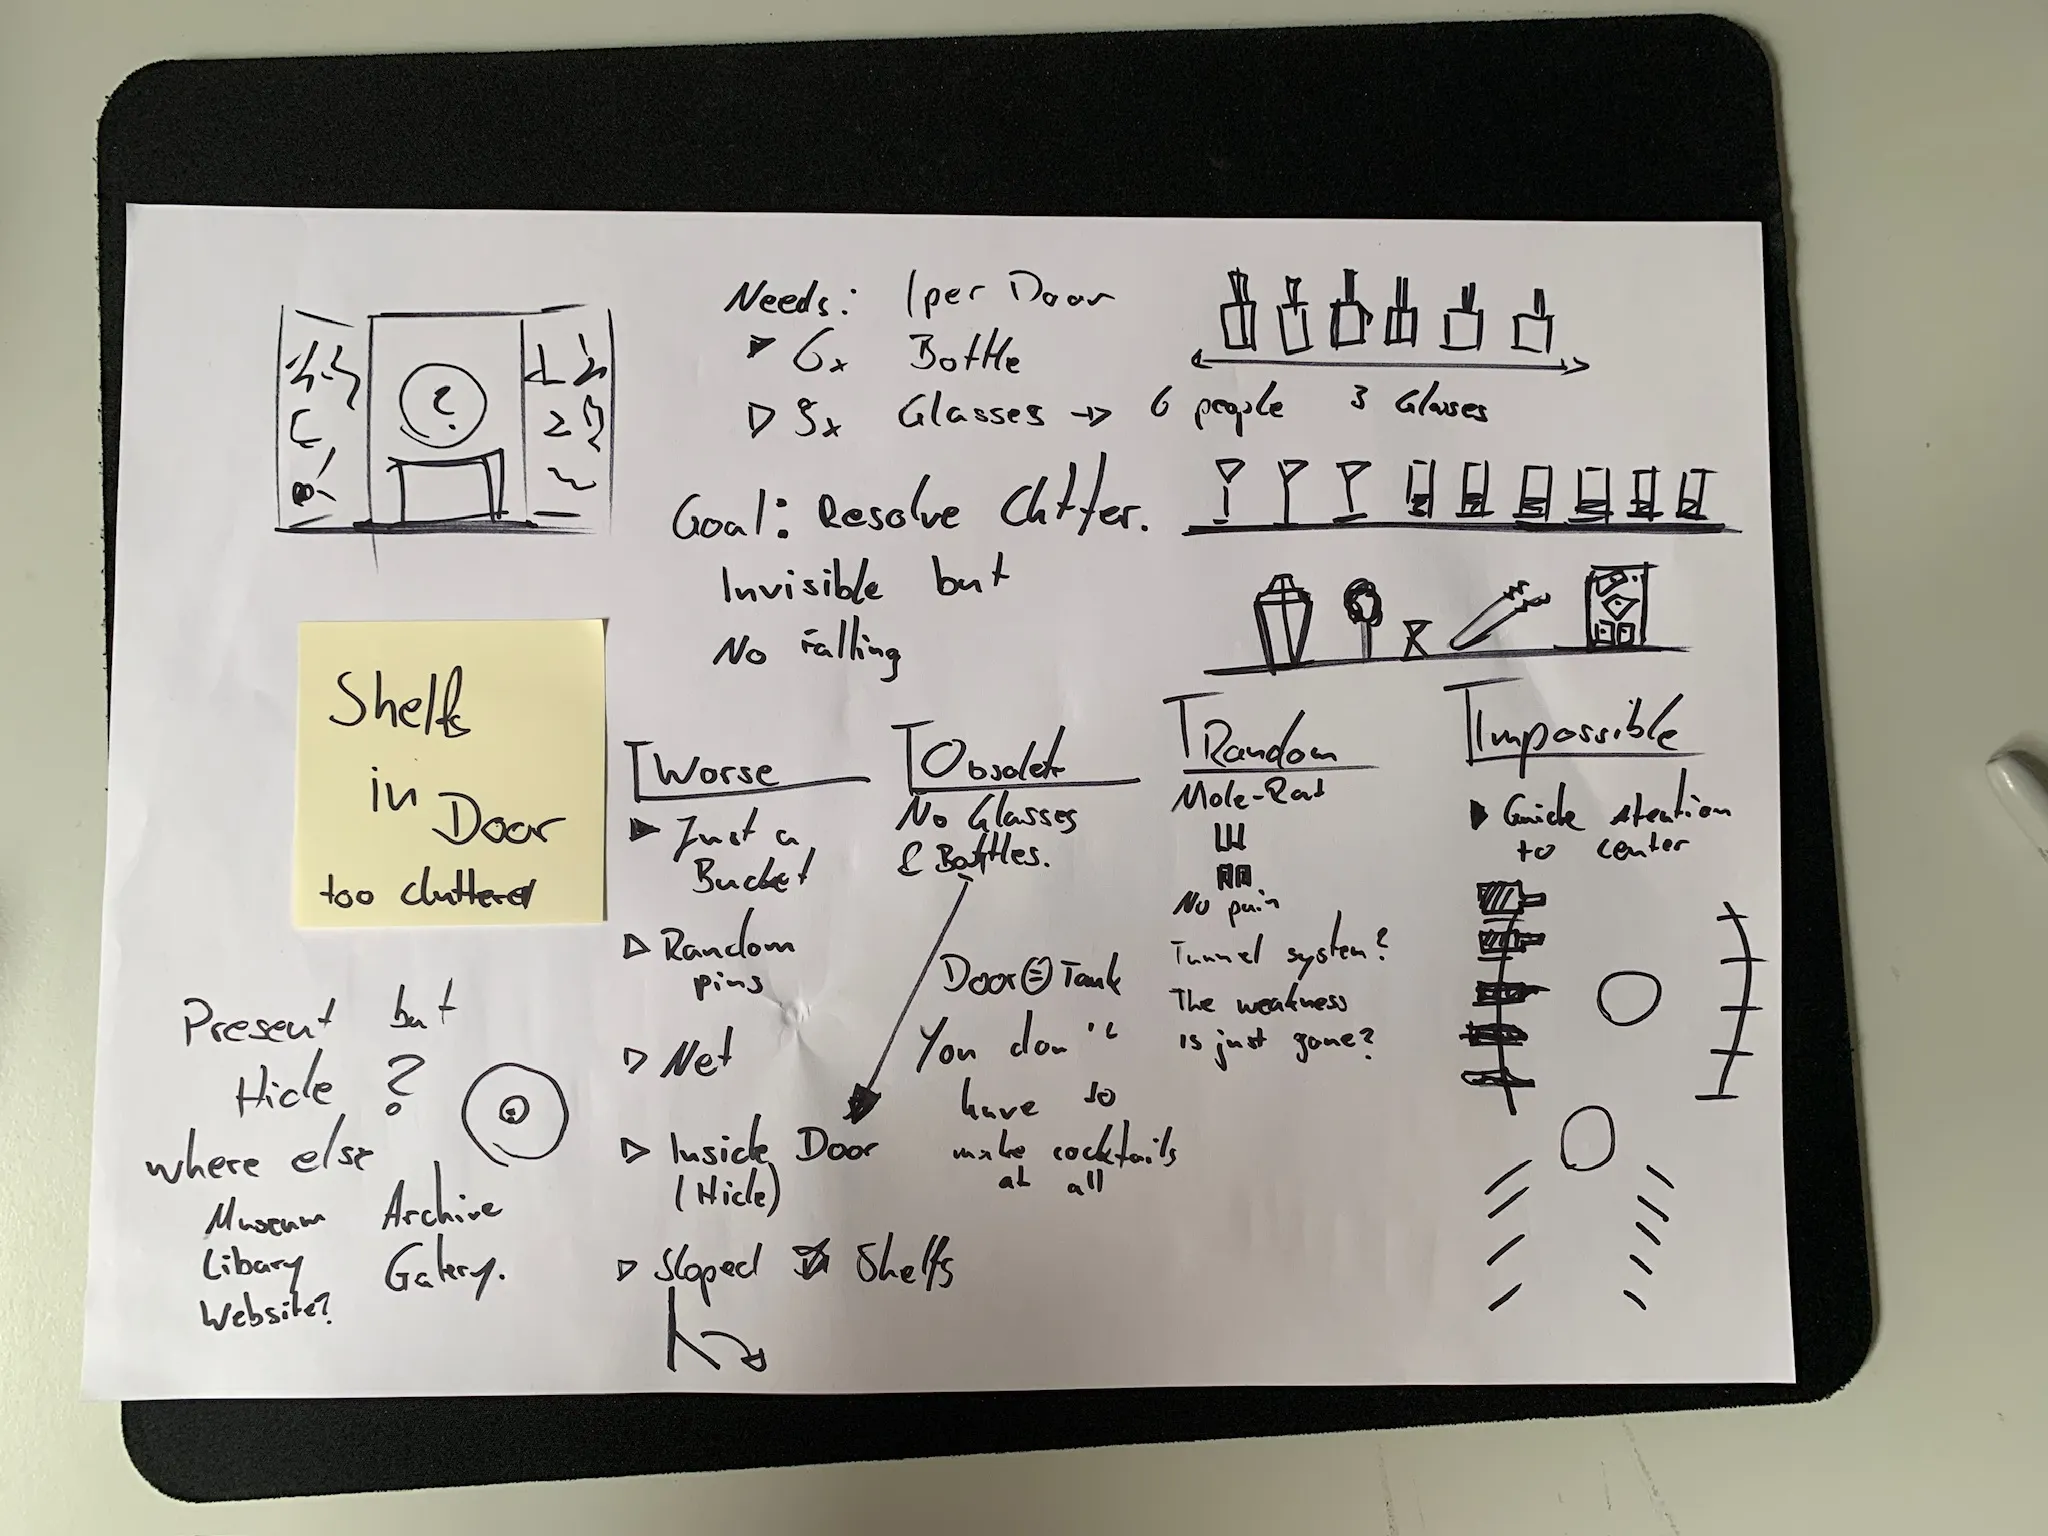 Needs: 1 per Door
6x Bottle
9x Glasses → 6 people 3 Glasses
Goal: Resolve Clutter.
Invisible but
No falling
?
Shelfs
in Door
too cluttered
Worse
Just a
Bucket
Random
pins
Net
Inside Door
(Hide)
Sloped Shelfs
Obsolete
No Glasses
& Bottles.
Door = Tank
You don't
have to
make cocktails
at all
Random
Mole-Rat
No pain
Tunnel system?
The weakness
is just gone?
Impossible
Guide atention
to center
Present but
Hide ?
where else
Museum Archive
Libary Galery.
Website?